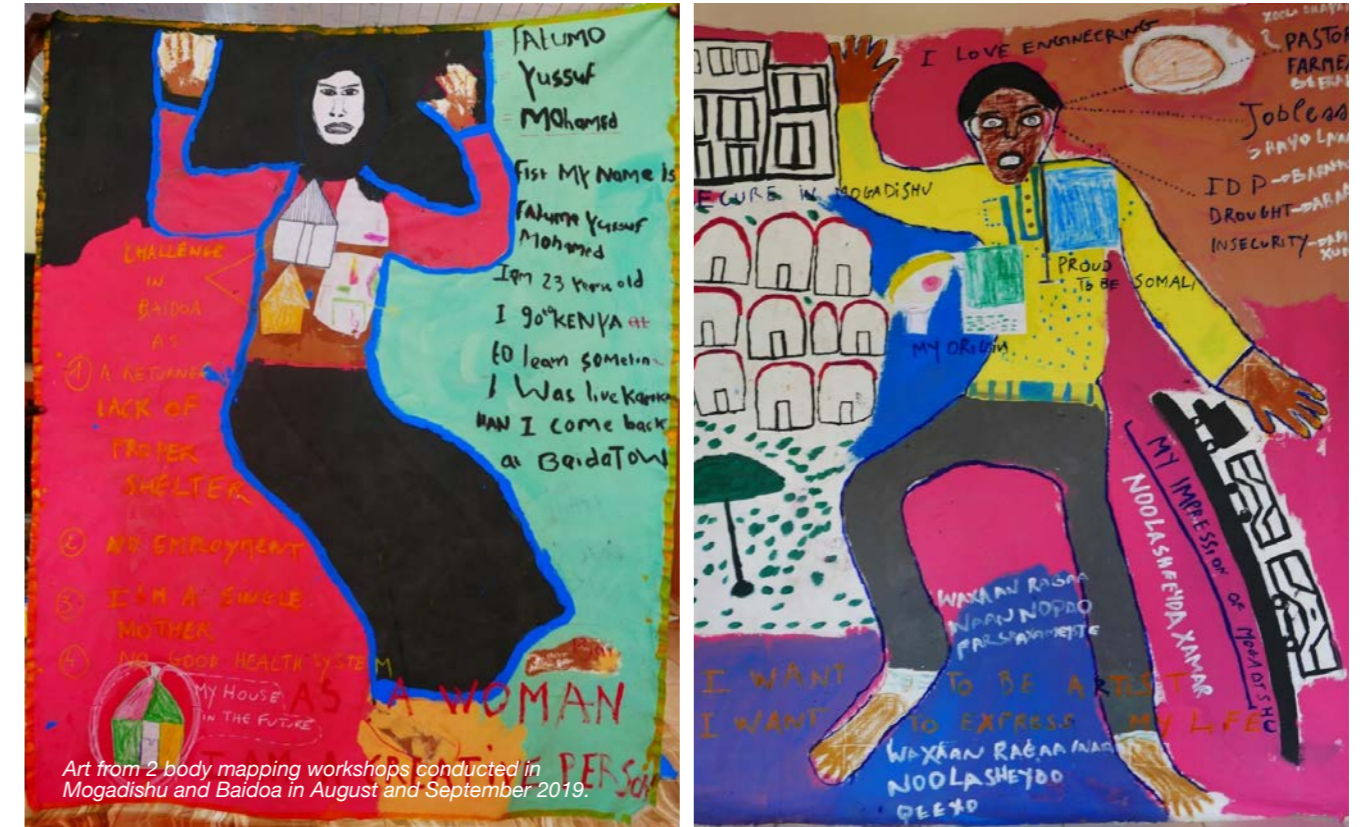 FATUMO
Yussuf
MOhamed
Fist My Name Is
Fatuma Yussuf
Mohamed
I am 23 years old
I go to KENYA at
to learn sometin
I Was live
HAN I come back
ai BaidaTow
CHALLENGE
IN
BAIDOA
AS
1 A RETURNEE
LACK OF
PROPER
SHELTER
2 NO EMPLOYMENT
3 I AM A SINGLE
MOTHER
4 NO GOOD HEALTH SYSTEM
MY HOUSE
IN THE FUTURE
AS A WOMAN
I AM A PERSON
Art from 2 body mapping workshops conducted in
Mogadishu and Baidoa in August and September 2019.
I LOVE ENGINEERING
PASTOR
FARMER
Jobless
IDP
DROUGHT
INSECURITY
ECURE IN MOGADISHU
I PROUD
TO BE SOMALI
MY ORIGIN
MY IMPRESSION OF MOGADISHU
NOOLASHEYDA XAMAR
WAXAAN RABAA
I WANT TO BE ARTIST
I WANT TO EXPRESS MY LIFE
WAXAAN RABAA INAAN
NOOLASHEYDO
QEEXO